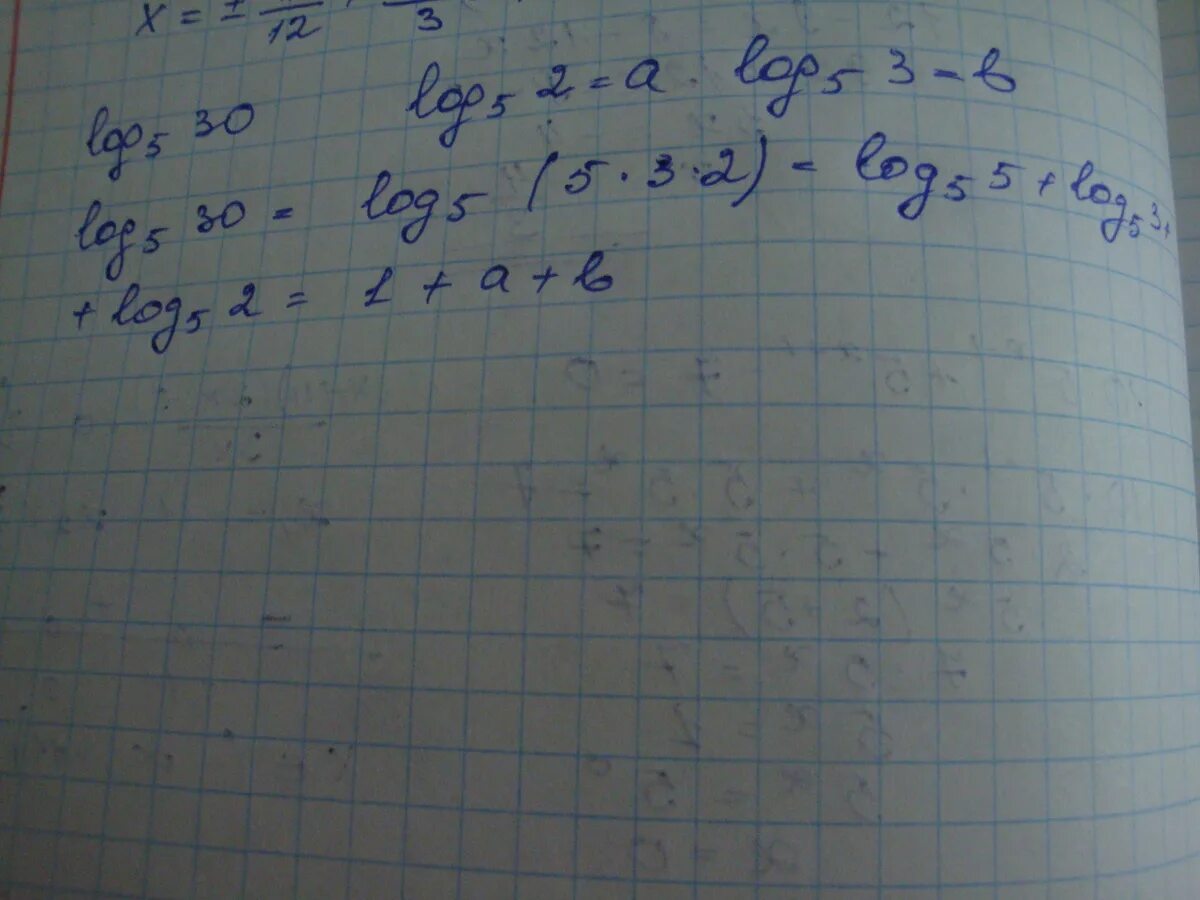 x = ± π/12 3
log₅ 30 log₅ 2 = a. log₅ 3 = b
log₅ 30 = log₅ (5 · 3 · 2) = log₅ 5 + log₅ 3 +
+ log₅ 2 = 1 + a + b